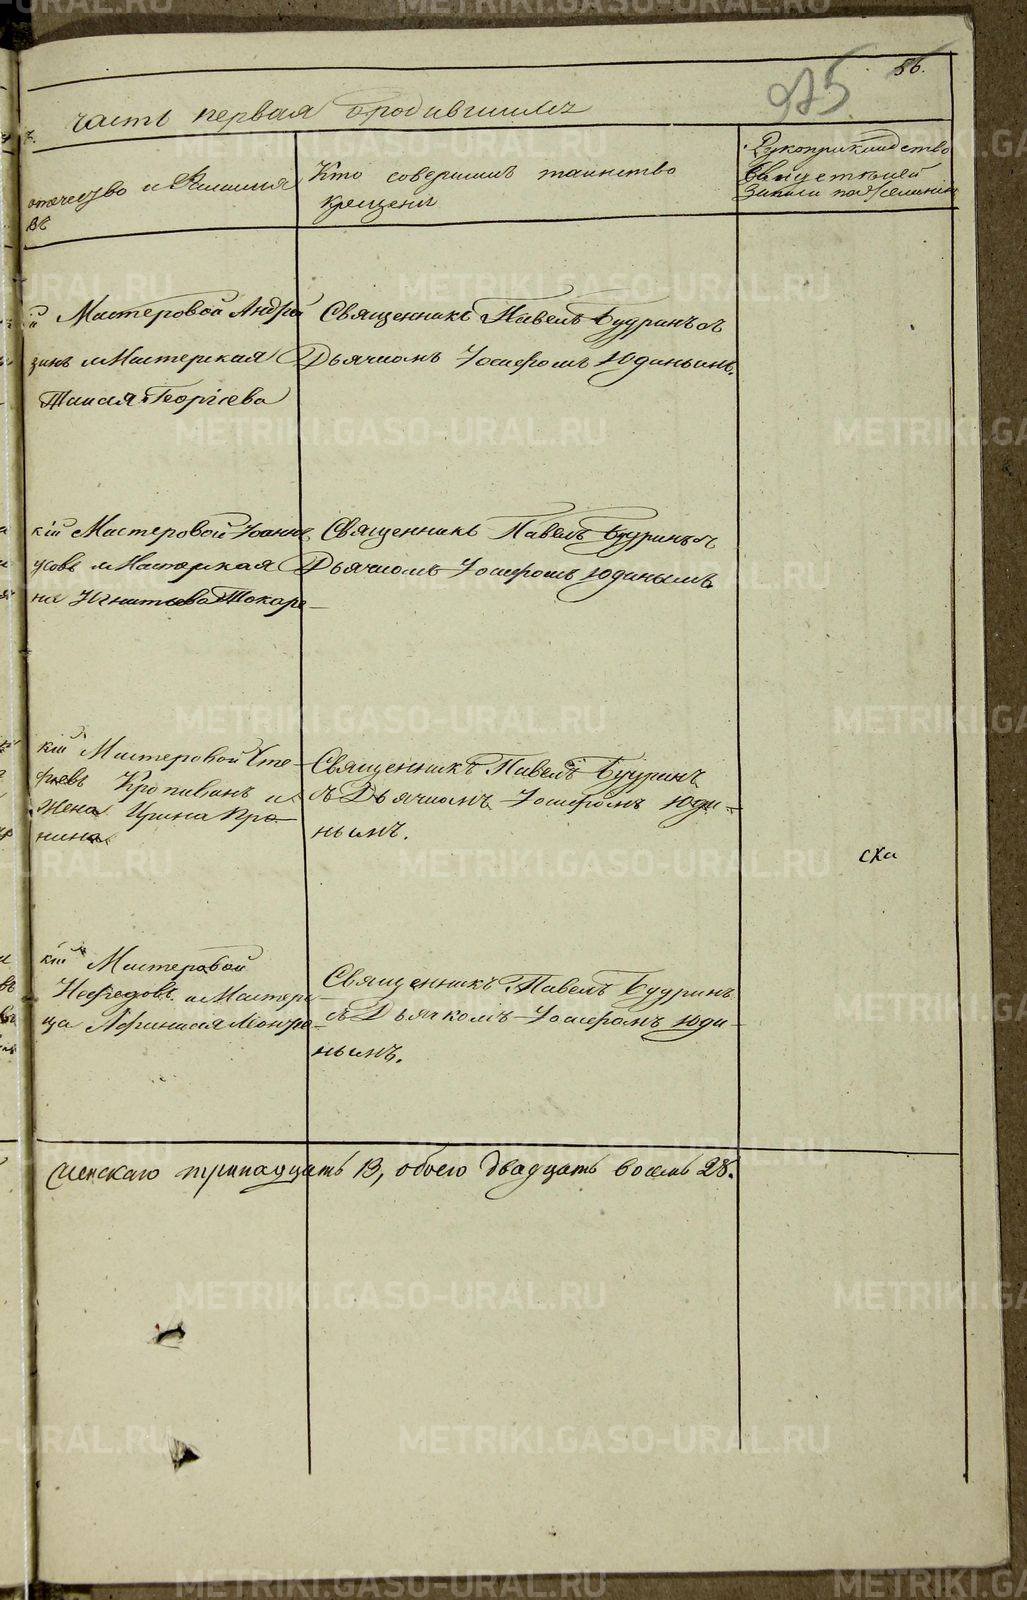 56.
975
часть первая о родившихся
отчество и Фамилия
въ
Кто совершилъ таинство
крещенія
Рукоприкладство
свидѣтелей
записи по желанію
й Мастеровой Андрей
зинъ и Мастерская
Таисія Георгіева
Священникъ Павелъ Будринъ съ
Дьячкомъ Іосифомъ Юдинымъ.
кій Мастеровой Іоаннъ
усовъ и Мастерская
на Игнатьева Токаре-
Священникъ Павелъ Будринъ съ
Дьячкомъ Іосифомъ Юдинымъ
кій Мастеровой Сте-
фіевъ Кропивинъ и
Жена Ирина Про-
нина
Священникъ Павелъ Будринъ
съ Дьячкомъ Іосифомъ Юди-
нымъ.
ска
кій Мастеровой
Нефедовъ и Мастерс-
ца
Священникъ Павелъ Будринъ
съ Дьячкомъ Іосифомъ Юди-
нымъ.
женскаго тринадцать 13, обоего двадцать восемь 28.
METRIKI.GASO-URAL.RU